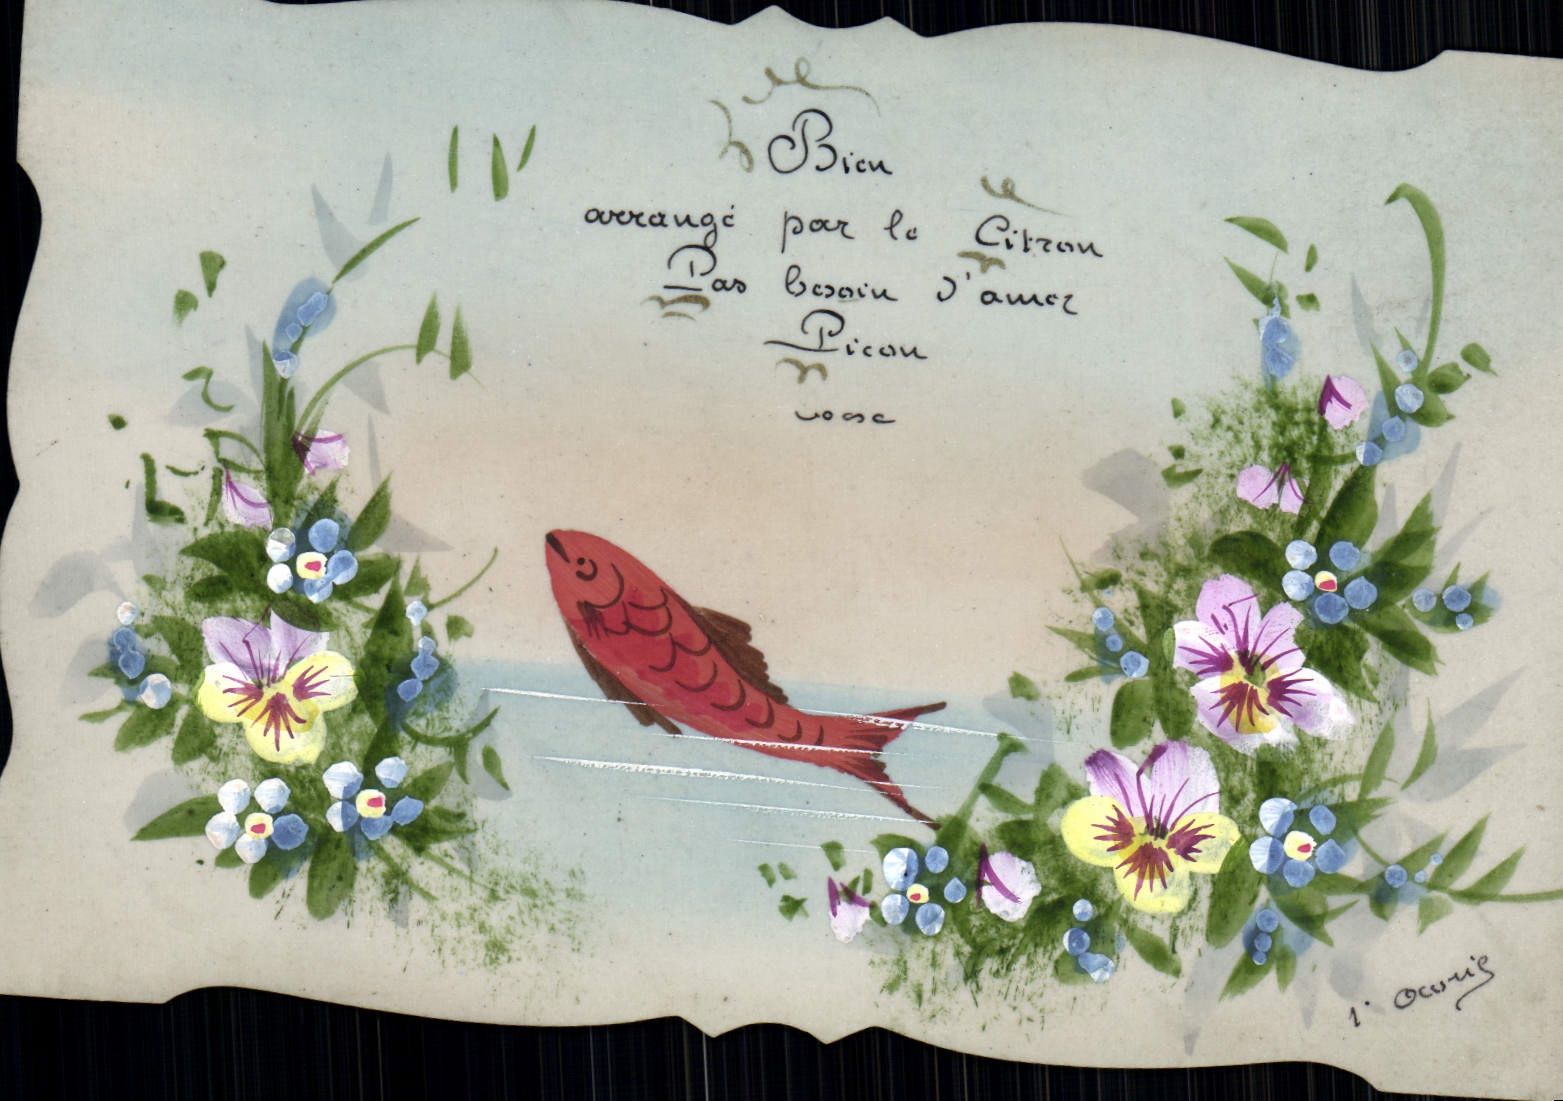 Bien
arrangé par le Citron
Pas besoin d'amer
Picon
1er